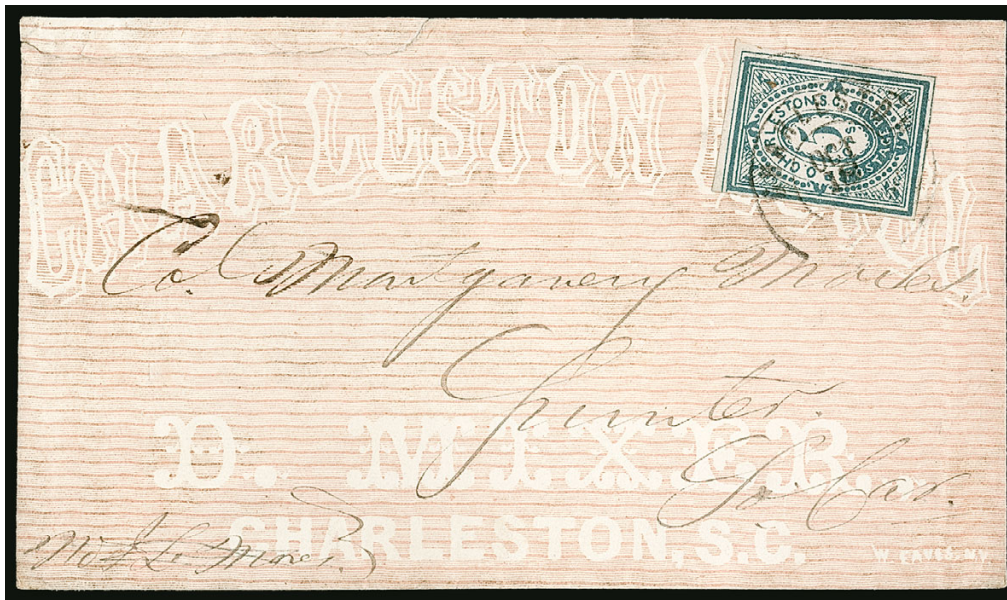 CHARLESTON HOTEL
P.O. CHARLESTON, S.C. FIVE CENTS POSTAGE
5
OCT
Col. Montgomery Moses.
Sumter.
So. Car.
D. MIXER.
CHARLESTON, S.C.
W. EAVES, N.Y.